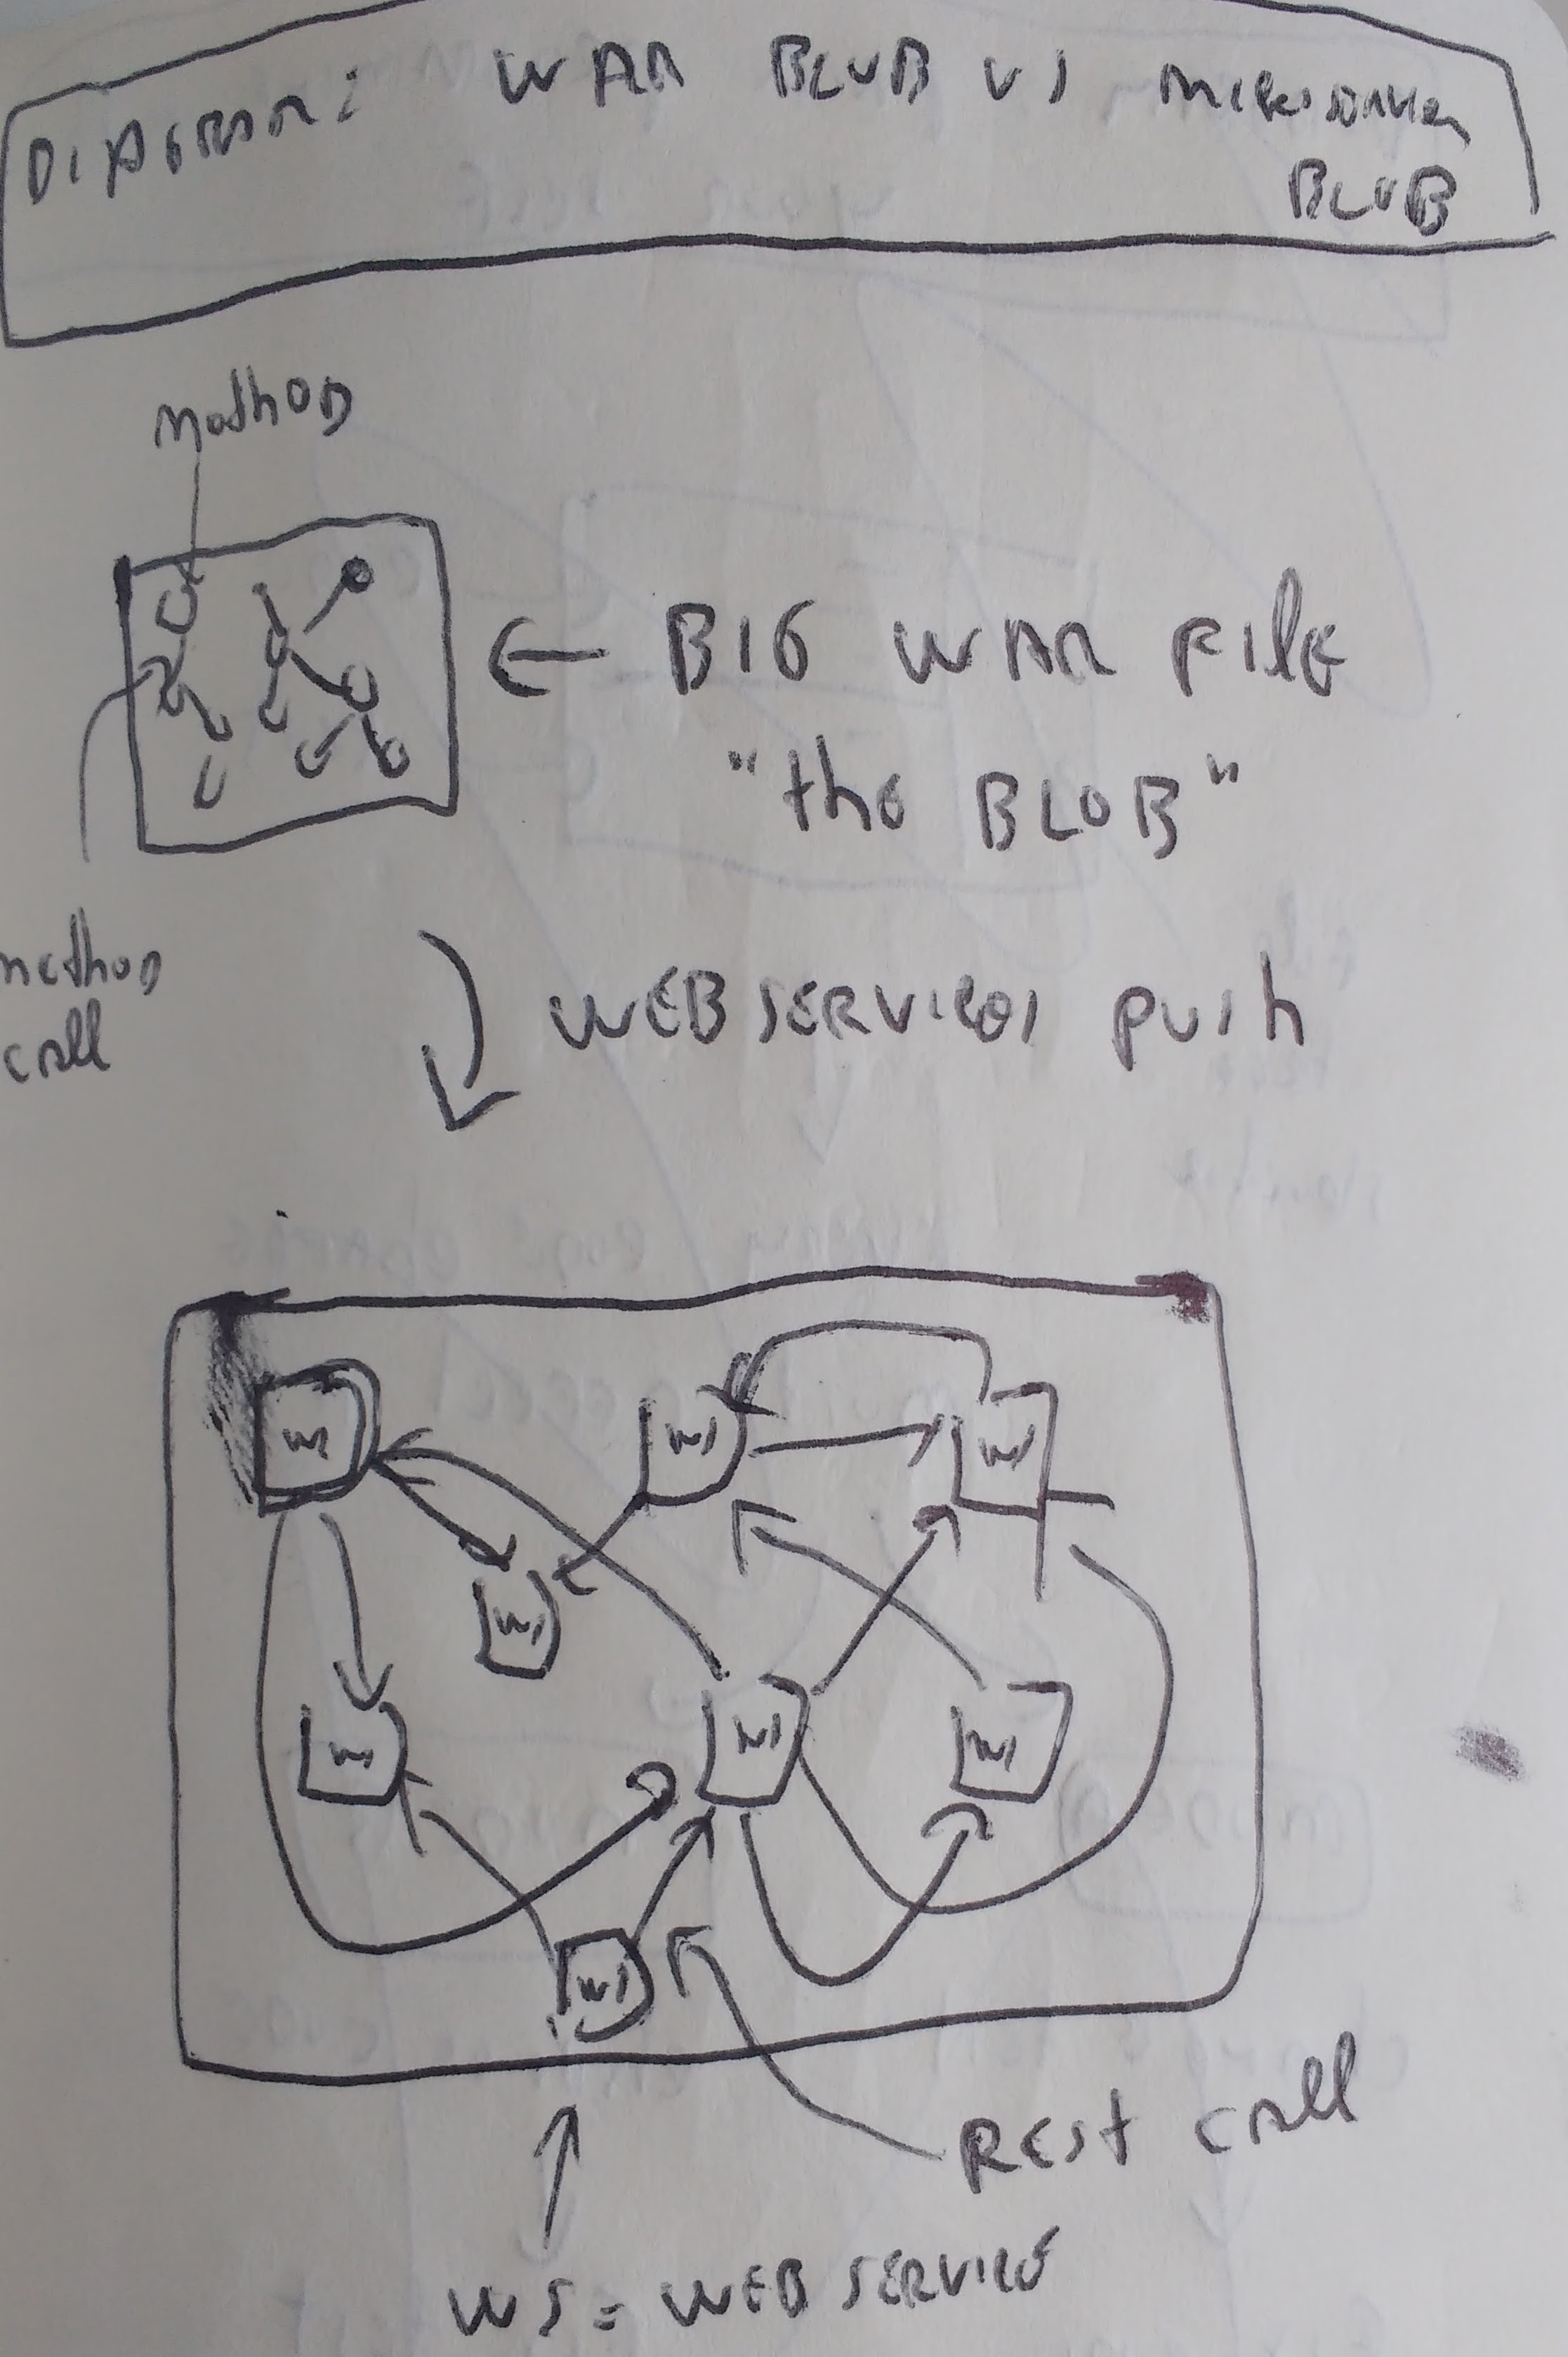 DIAGRAM: WAR BLOB VS microservices
BLOB
method
← BIG WAR FilE
"the BLOB"
method
call
WEBSERVICES push
WS
WS
WS
WS
WS
WS
WS
WS
REST call
WS = WEB SERVICE